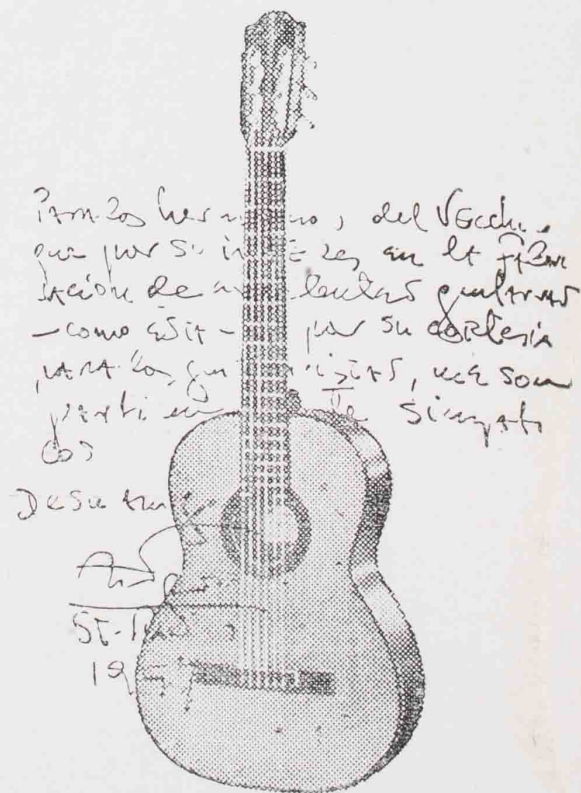 Para los hermanos del Vecchio,
que por su interés en la fabri
cación de excelentes guitarras
– como esta – por su cortesía
para los guitarristas, me son
simpáti
cos
De su
1957